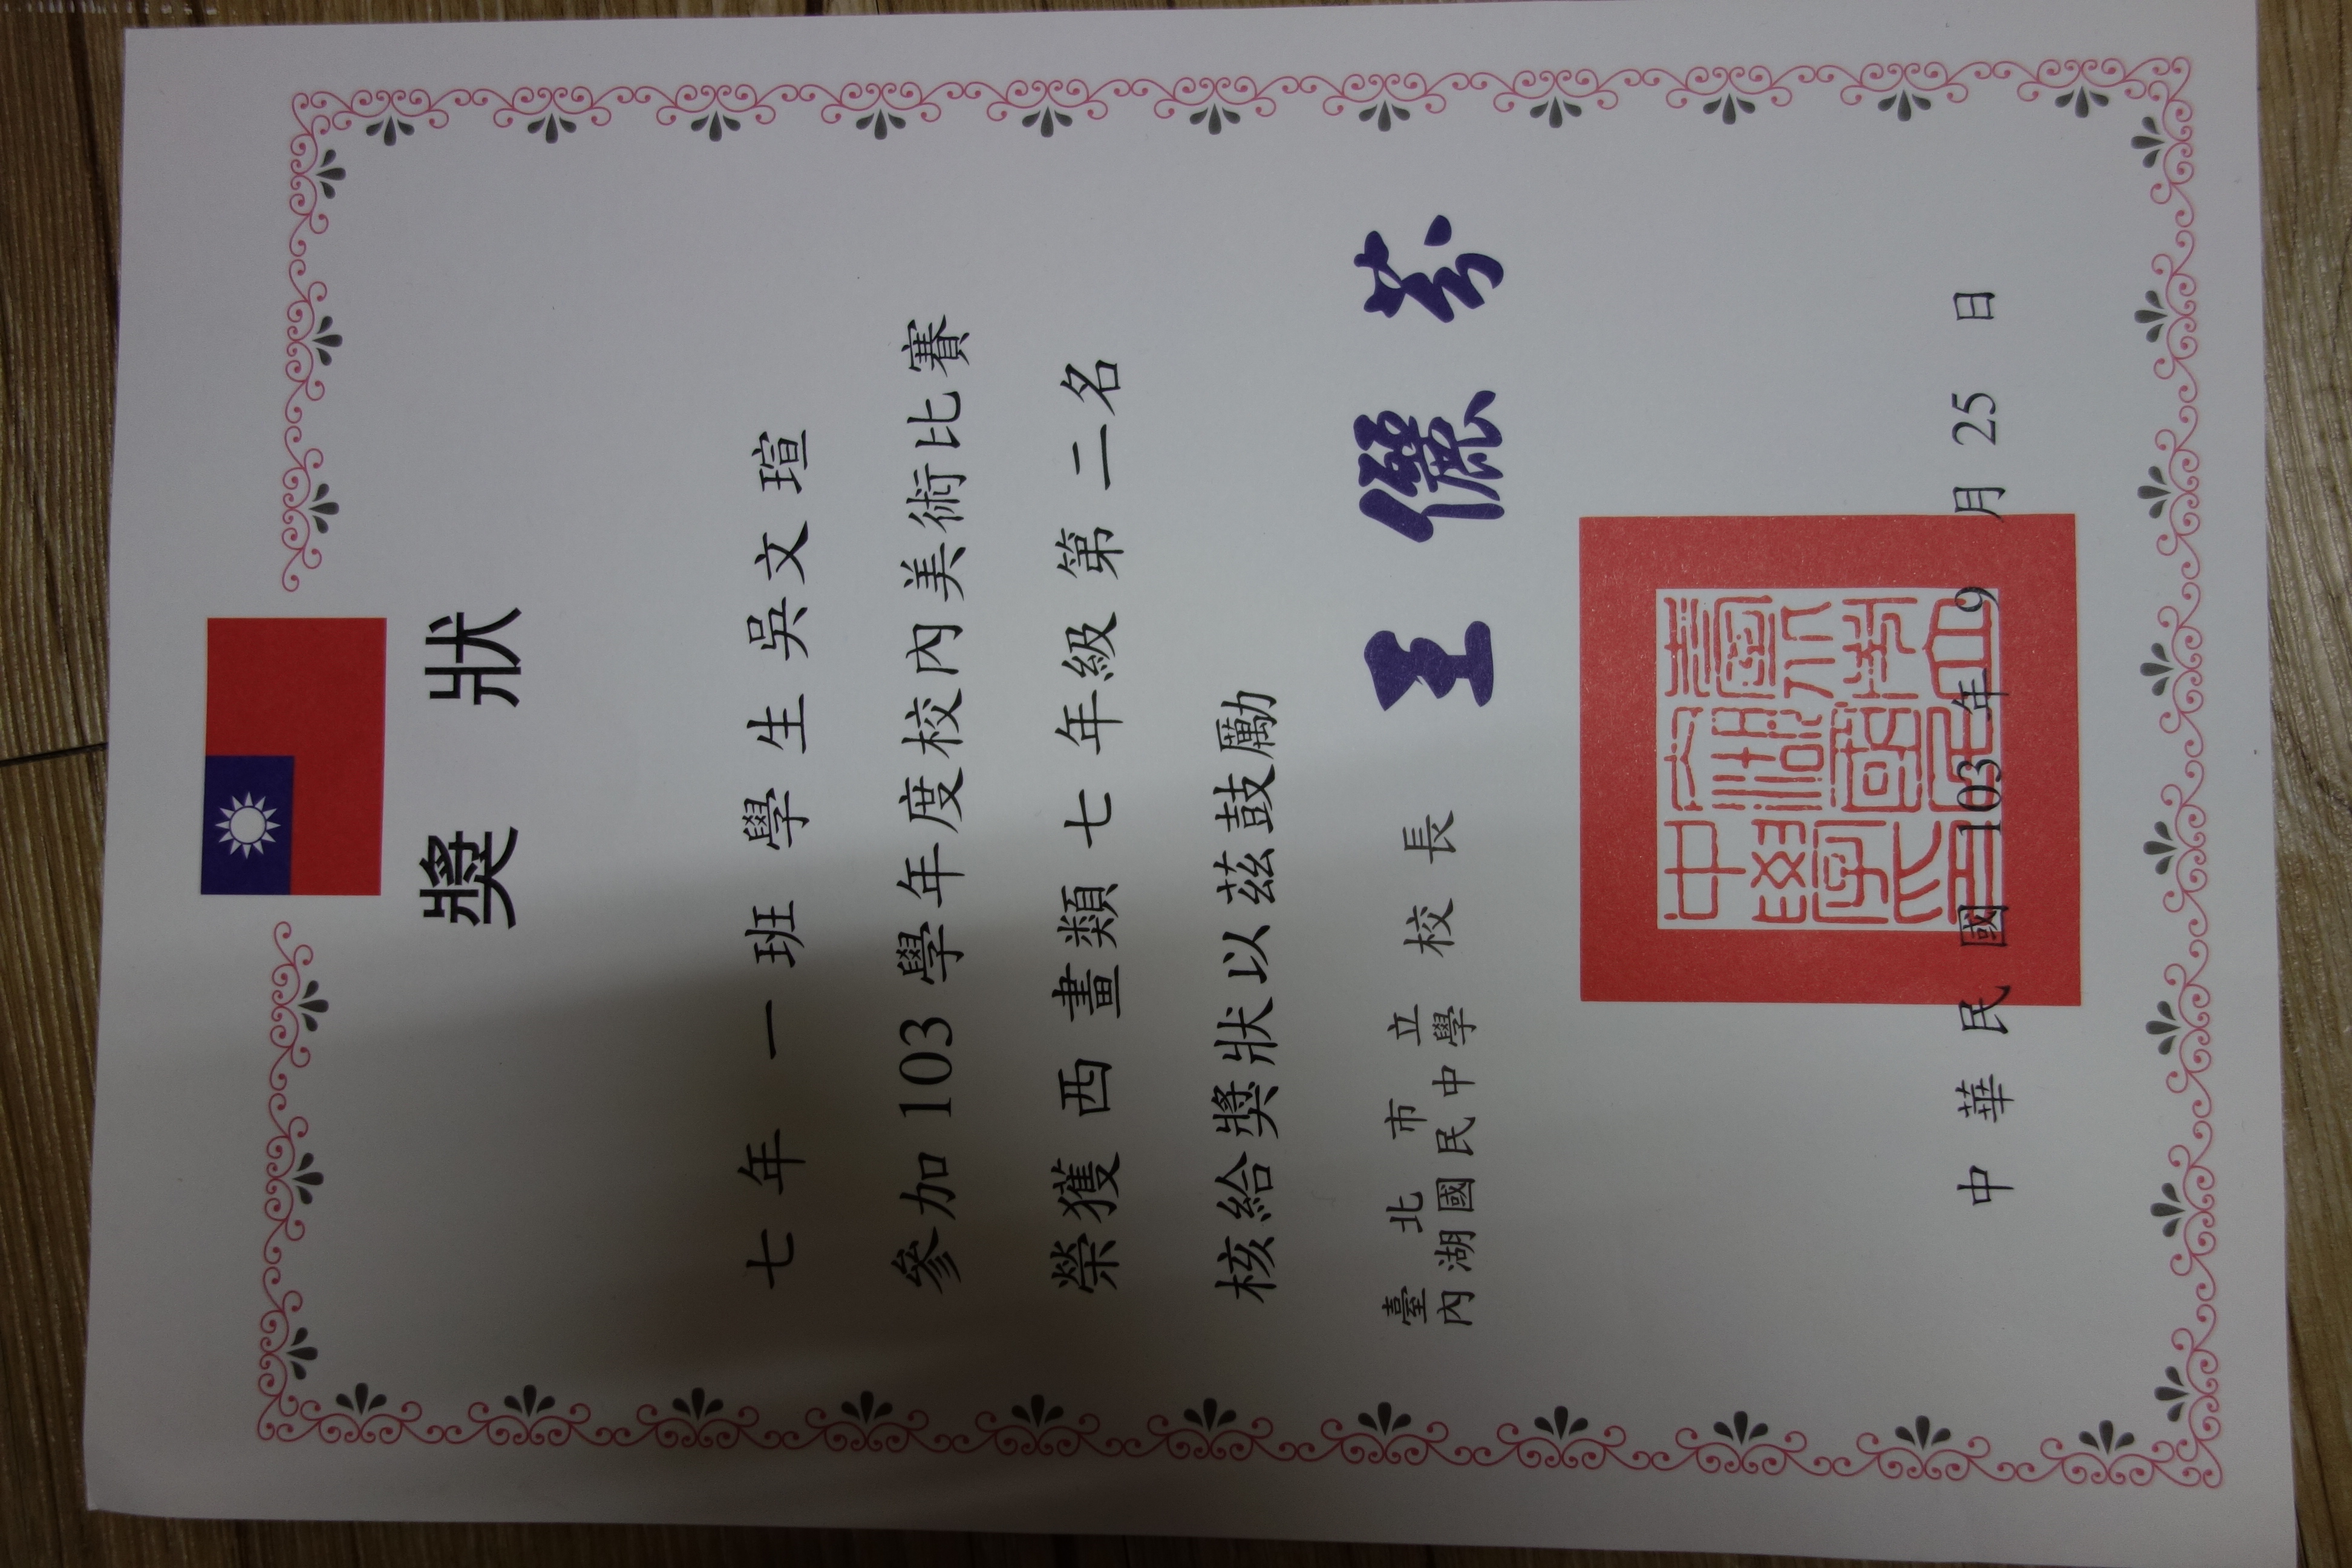 獎 狀
七 年 一 班 學 生 吳 文 瑄
參加 103 學年度校內美術比賽
榮獲 西 畫 類 七 年 級 第 二 名
核給獎狀以茲鼓勵
臺 北 市 立
內湖國民中學 校 長 王 儷 芬
中 華 民 國 103 年 9 月 25 日